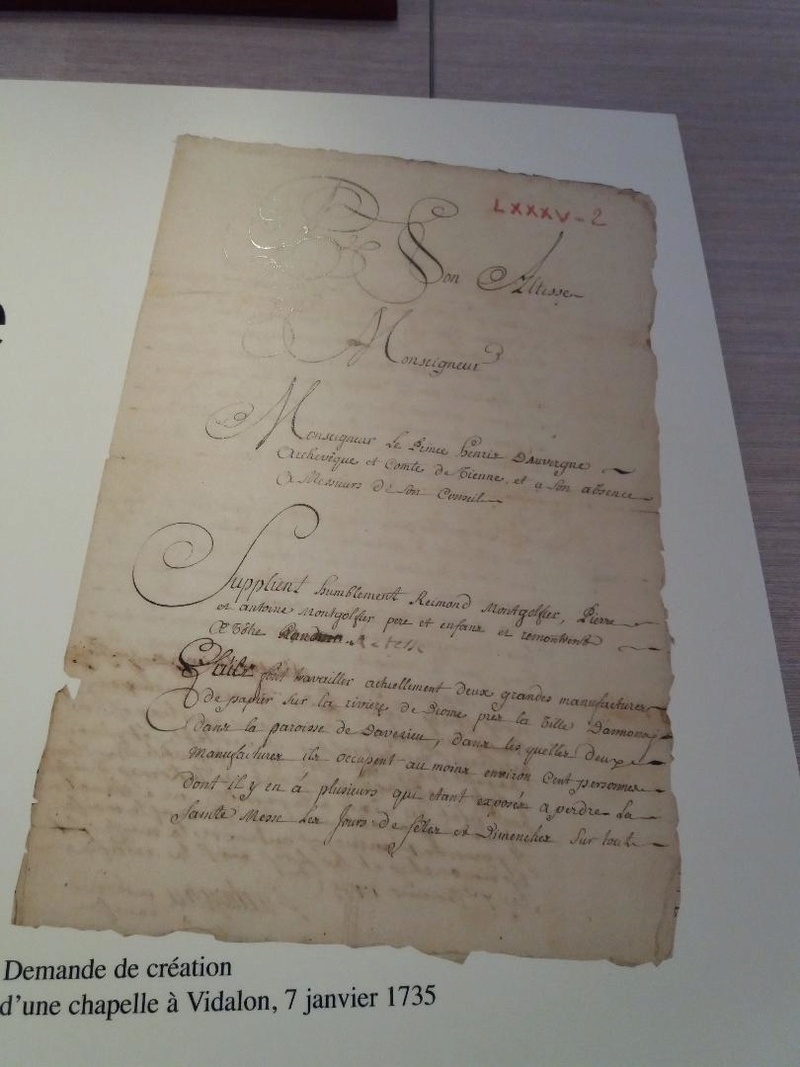 LXXXV-2
A Son Altesse
Monseigneur
Monseigneur Le Prince henrix Dauvergne
Archevêque et Comte de Vienne, et a son absence
A Messieurs de son Conseil
Supplient humblement Reimond Montgolfier, Pierre
et antoine Montgolfier pere et enfans et remontrent
A Vôtre
font travailler actuellement deux grandes manufactures
de papier sur la riviere de Diome prez la Ville Dannonay
dans la paroisse de Davezieu, dans lesquelles deux
Manufactures ils occupent au moins environ Cent personnes
dont il y en á plusieurs qui etant exposéz a perdre La
Sainte Messe Les Jours de fêtes et Dimenches Sur tout
Demande de création
d'une chapelle à Vidalon, 7 janvier 1735